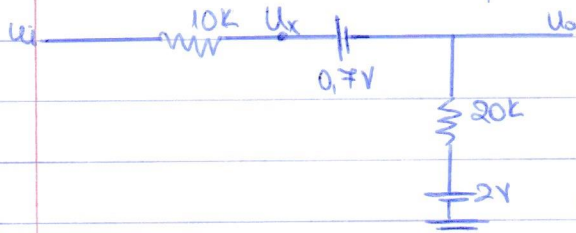 ui 10K Ux Uo
0,7V
20K
2V